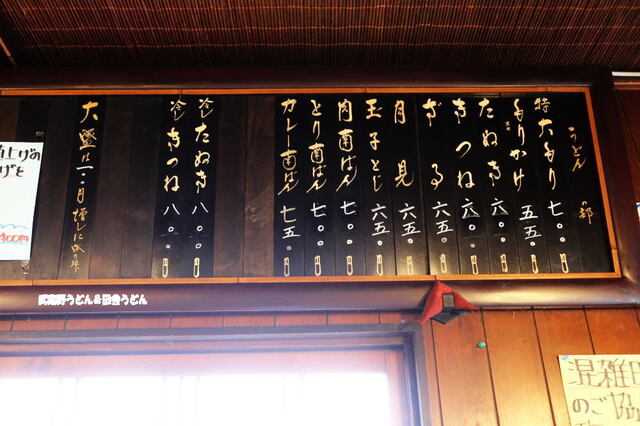 うどん の部
特大もり 七〇〇
もりかけ 五五〇
たぬき 六〇〇
きつね 六〇〇
ざる 六五〇
月見 六五〇
玉子とじ 六五〇
肉南ばん 七〇〇
とり南ばん 七〇〇
カレー南ばん 七五〇
冷したぬき 八〇〇
冷しきつね 八〇〇
大盛は一〇〇円増しになります
上げの
げと
400円
武蔵野うどん&田舎うどん
混雑
のご協